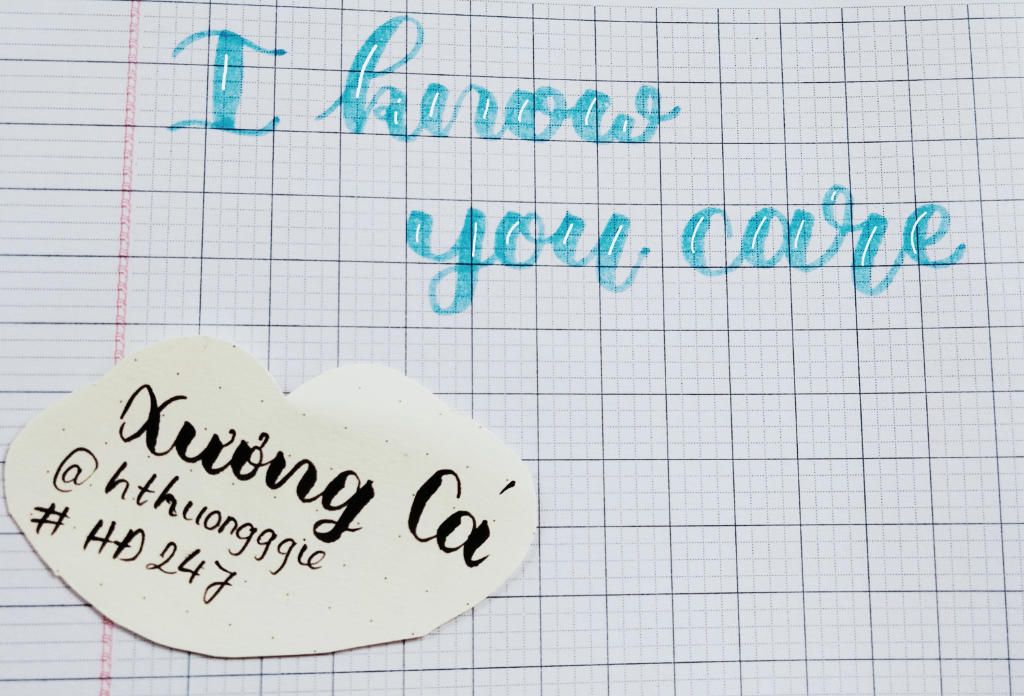 I know
you care
Xương Cá
@hthuongggie
#HĐ247